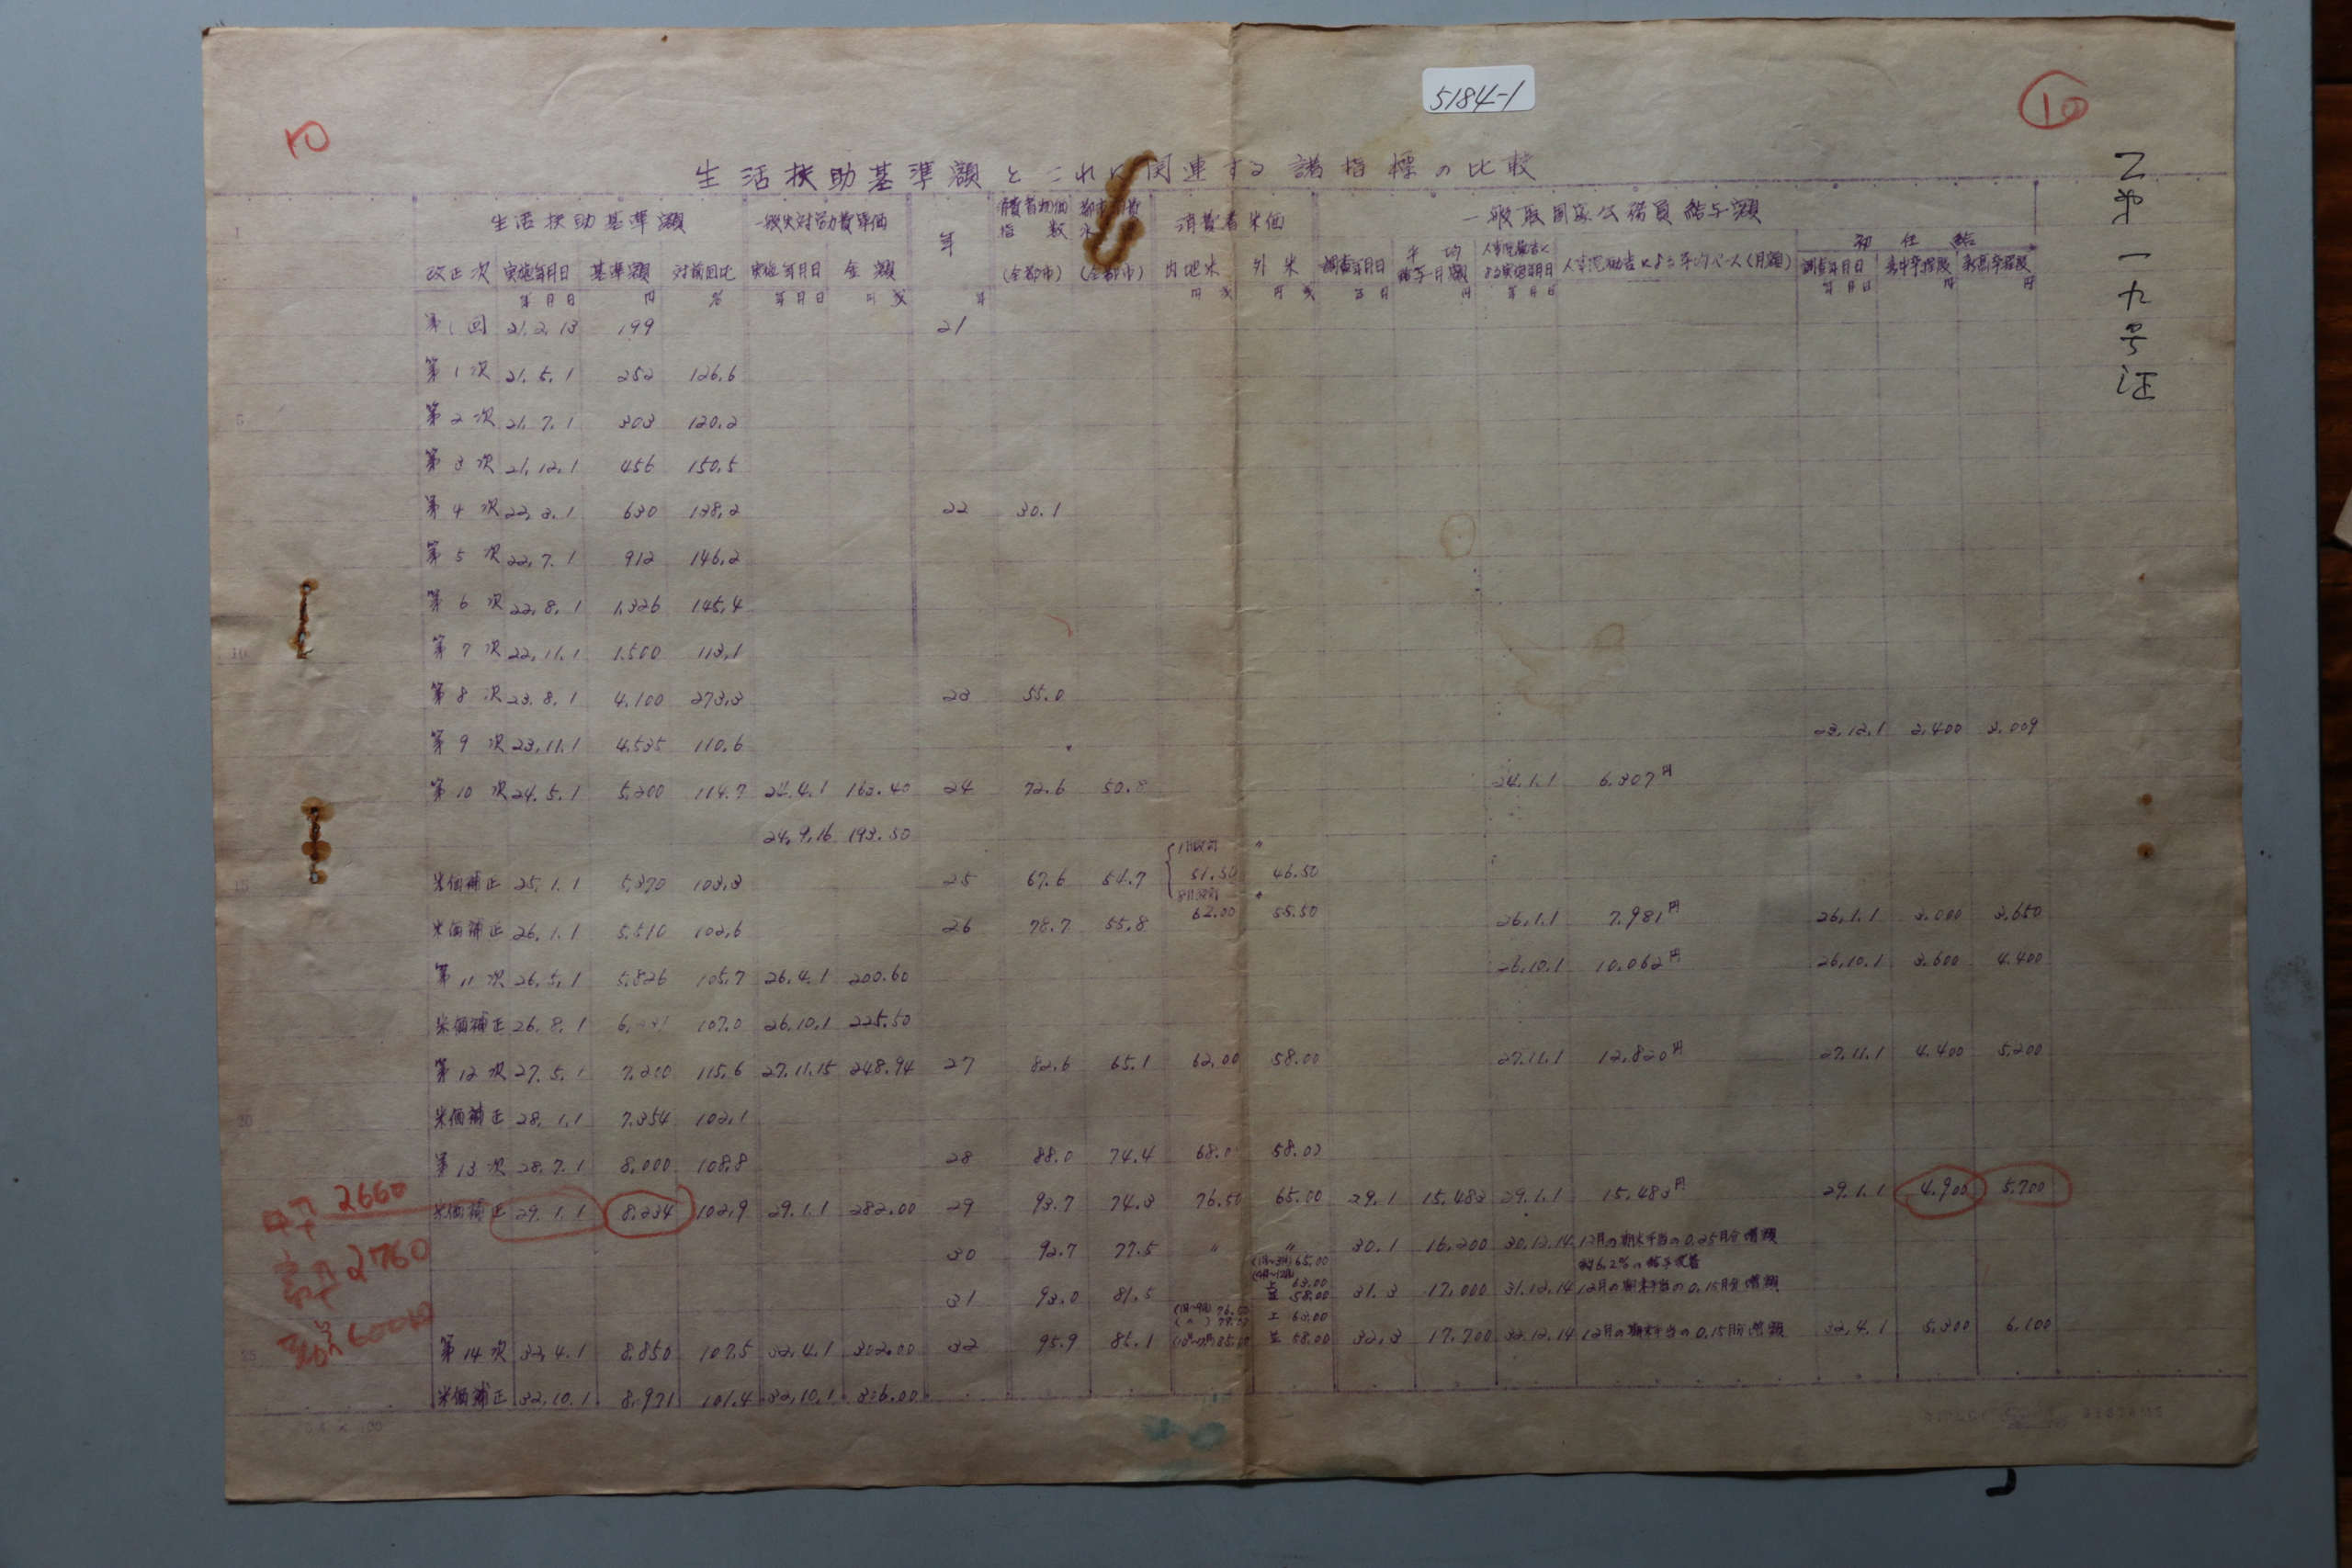 5184-1
10
乙第一九号証
生活扶助基準額とこれに関連する諸指標の比較
生活扶助基準額 一般失対労力費単価 年 消費者物価指数 (全都市) (全都市) 消費者米価 一般職国家公務員給与額
改正次 実施年月日 基準額 対前回比 実施年月日 金額 内地米 外米 調査年月日 平均給与月額 人事院勧告による実施年月日 人事院勧告による平均ベース(月額) 初任給 調査年月日 新中卒程度 新高卒程度
年月日 円 % 年月日 円銭 年 円銭 円銭 年日 円 年月日 年月日 円 円
第1回 21.2.13 199 21
第1次 21.5.1 252 126.6
第2次 21.7.1 303 120.2
第3次 21.12.1 456 150.5
第4次 22.3.1 630 138.2 22 30.1
第5次 22.7.1 912 146.2
第6次 22.8.1 1,326 145.4
第7次 22.11.1 1,500 113.1
第8次 23.8.1 4,100 273.3 23 55.0
第9次 23.11.1 4,535 110.6 23.12.1 2,400 3,009
第10次 24.5.1 5,200 114.7 24.4.1 163.40 24 72.6 50.8 24.1.1 6,307円
24.9.16 193.50
米価補正 25.1.1 5,370 103.3 25 67.6 54.7 51.50 46.50
62.00 55.50
米価補正 26.1.1 5,510 102.6 26 78.7 55.8 26.1.1 7,981円 26.1.1 3,000 3,650
第11次 26.5.1 5,826 105.7 26.4.1 200.60 26.10.1 10,062円 26.10.1 3,600 4,400
米価補正 26.8.1 107.0 26.10.1 225.50
第12次 27.5.1 7,200 115.6 27.11.15 248.94 27 82.6 65.1 62.00 58.00 27.11.1 12,820円 27.11.1 4,400 5,200
米価補正 28.1.1 7,354 102.1
第13次 28.7.1 8,000 108.8 28 88.0 74.4 68.0 58.00
2660
米価補正 29.1.1 8,234 102.9 29.1.1 282.00 29 93.7 74.3 76.50 65.00 29.1 15,483 29.1.1 15,483円 29.1.1 4,900 5,700
2760
30 92.7 77.5 〃 〃 30.1 16,200 30.12.14 12月の期末手当の0.25月分増額
(1月~3月) 65.00 約6.2%の給与改善
31 93.0 81.5 63.00 58.00 31.3 17,000 31.12.14 12月の期末手当の0.15月分増額
第14次 32.4.1 8,850 107.5 32.4.1 302.00 32 95.9 86.1 63.00 58.00 32.3 17,700 32.12.14 12月の期末手当の0.15月分増額 32.4.1 5,300 6,100
米価補正 32.10.1 8,971 101.4 32.10.1 306.00